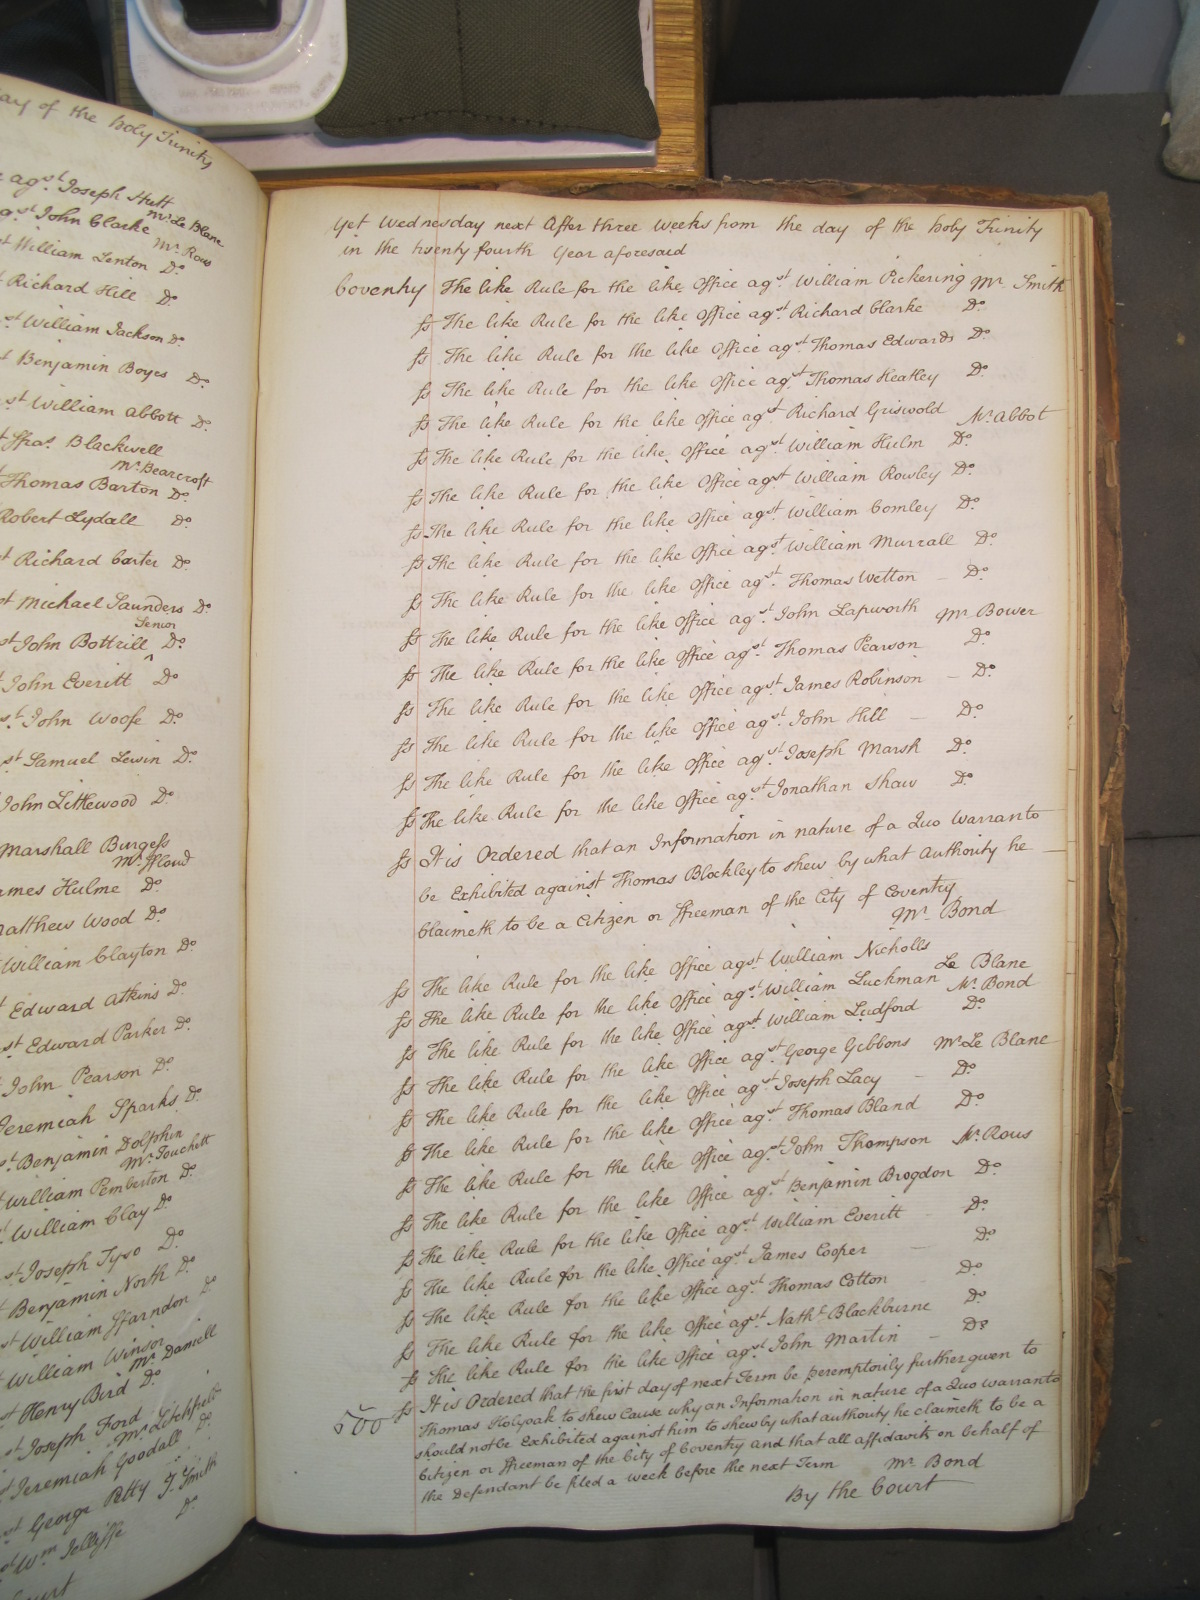 day of the holy Trinity
agst Joseph Hutt
Mr Le Blanc
agst John Clarke
Mr Rous
st William Lenton Do
Richard Hill Do
st William Jackson Do
st Benjamin Boyes Do
st William Abbott Do
st Ffras. Blackwell
Mr Bearcroft
Thomas Barton Do
Robert Lydall Do
st Richard Carter Do
st Michael Saunders Do
Senior
st John Bottrill ^ Do
st John Everitt Do
st John Woofe Do
st Samuel Lewin Do
John Littlewood Do
Marshall Burgess
Mr Ffloud
James Hulme Do
Matthew Wood Do
William Clayton Do
st Edward Atkins Do
st Edward Parker Do
John Pearson Do
Jeremiah Sparks Do
st Benjamin Dolphin
Mr Touchett
st William Pemberton Do
st William Clay Do
st Joseph Tyso Do
st Benjamin North Do
st William Ffarndon Do
st William Winsor
Mr Daniell
st Henry Bird Do
st Joseph Ford
Mr Litchfield
st Jeremiah Goodall Do
st George Petty T. Smith
st Wm Jelliffe Do
Court
Yet Wednesday next After three Weeks from the day of the holy Trinity
in the twenty fourth Year aforesaid
Coventry The like Rule for the like Office agst William Pickering Mr Smith
ss The like Rule for the like Office agst Richard Clarke Do
ss The like Rule for the like Office agst Thomas Edwards Do
ss The like Rule for the like Office agst Thomas Heatley Do
ss The like Rule for the like Office agst Richard Griswold Mr Abbot
ss The like Rule for the like Office agst William Hulm Do
ss The like Rule for the like Office agst William Rowley Do
ss The like Rule for the like Office agst William Comley Do
ss The like Rule for the like Office agst William Murrall Do
ss The like Rule for the like Office agst Thomas Wetton – Do
ss The like Rule for the like Office agst John Lapworth Mr Bower
ss The like Rule for the like Office agst Thomas Pearson Do
ss The like Rule for the like Office agst James Robinson – Do
ss The like Rule for the like Office agst John Hill – Do
ss The like Rule for the like Office agst Joseph Marsh Do
ss The like Rule for the like Office agst Jonathan Shaw Do
ss It is Ordered that an Information in nature of a Quo Warranto
be Exhibited against Thomas Blockley to shew by what Authority he
Claimeth to be a Citizen or Ffreeman of the City of Coventry
Mr Bond
ss The like Rule for the like Office agst William Nicholls Le Blanc
ss The like Rule for the like Office agst William Luckman Mr Bond
ss The like Rule for the like Office agst William Ludford Do
ss The like Rule for the like Office agst George Gibbons Mr Le Blanc
ss The like Rule for the like Office agst Joseph Lacy – Do
ss The like Rule for the like Office agst Thomas Bland Do
ss The like Rule for the like Office agst John Thompson Mr Rous
ss The like Rule for the like Office agst Benjamin Brogdon Do
ss The like Rule for the like Office agst William Everitt – Do
ss The like Rule for the like Office agst James Cooper – Do
ss The like Rule for the like Office agst Thomas Cotton Do
ss The like Rule for the like Office agst Nathl Blackburne Do
ss The like Rule for the like Office agst John Martin – Do
ss It is Ordered that the first day of next Term be peremptorily further given to
Thomas Holyoak to shew Cause why an Information in nature of a Quo Warranto
should not be Exhibited against him to shew by what authority he claimeth to be a
Citizen or Ffreeman of the City of Coventry and that all affidavits on behalf of
the Defendant be filed a week before the next Term Mr Bond
By the Court